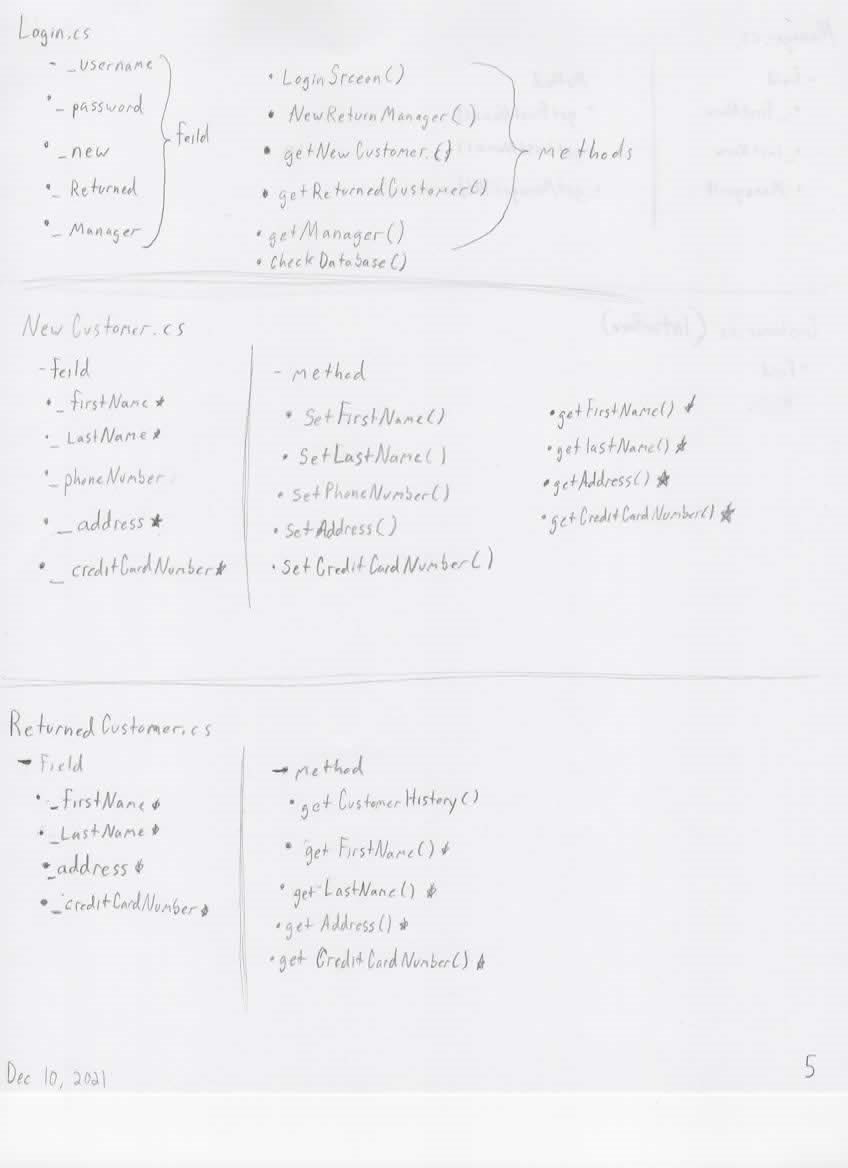 Login.cs
- _username
• _ password
• _new
• _ Returned
• _ Manager
feild
• LoginSrceen()
• NewReturnManager()
• getNewCustomer()
• getReturnedCustomer()
• getManager()
• CheckDatabase()
methods
New Customer.cs
- feild
• _ firstName ★
• _ LastName ★
• _ phoneNumber
• _ address ★
• _ creditCardNumber ★
- method
• SetFirstName()
• SetLastName()
• SetPhoneNumber()
• SetAddress()
• SetCreditCardNumber()
• getFirstName() ★
• getlastName() ★
• getAddress() ★
• getCreditCardNumber() ★
Returned Customer.cs
- Field
• _firstName ★
• _LastName ★
• _address ★
• _creditCardNumber ★
- method
• get CustomerHistory()
• get FirstName() ★
• get LastName() ★
• get Address() ★
• get CreditCardNumber() ★
Dec 10, 2021
5